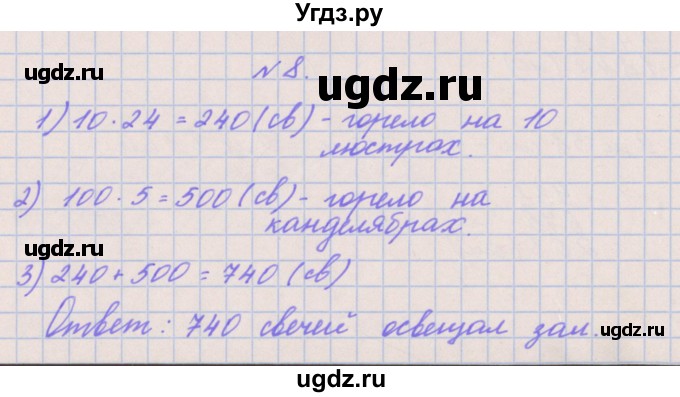 Угдз.ру
ugdz.ru
ugdz.ru
№ 8.
ugdz.ru
1) 10 · 24 = 240 (св) - горело на 10
люстрах.
ugdz.ru
2) 100 · 5 = 500 (св) - горело на
канделябрах.
ugdz.ru
3) 240 + 500 = 740 (св)
Ответ: 740 свечей освещал зал.
ugdz.ru
ugdz.ru